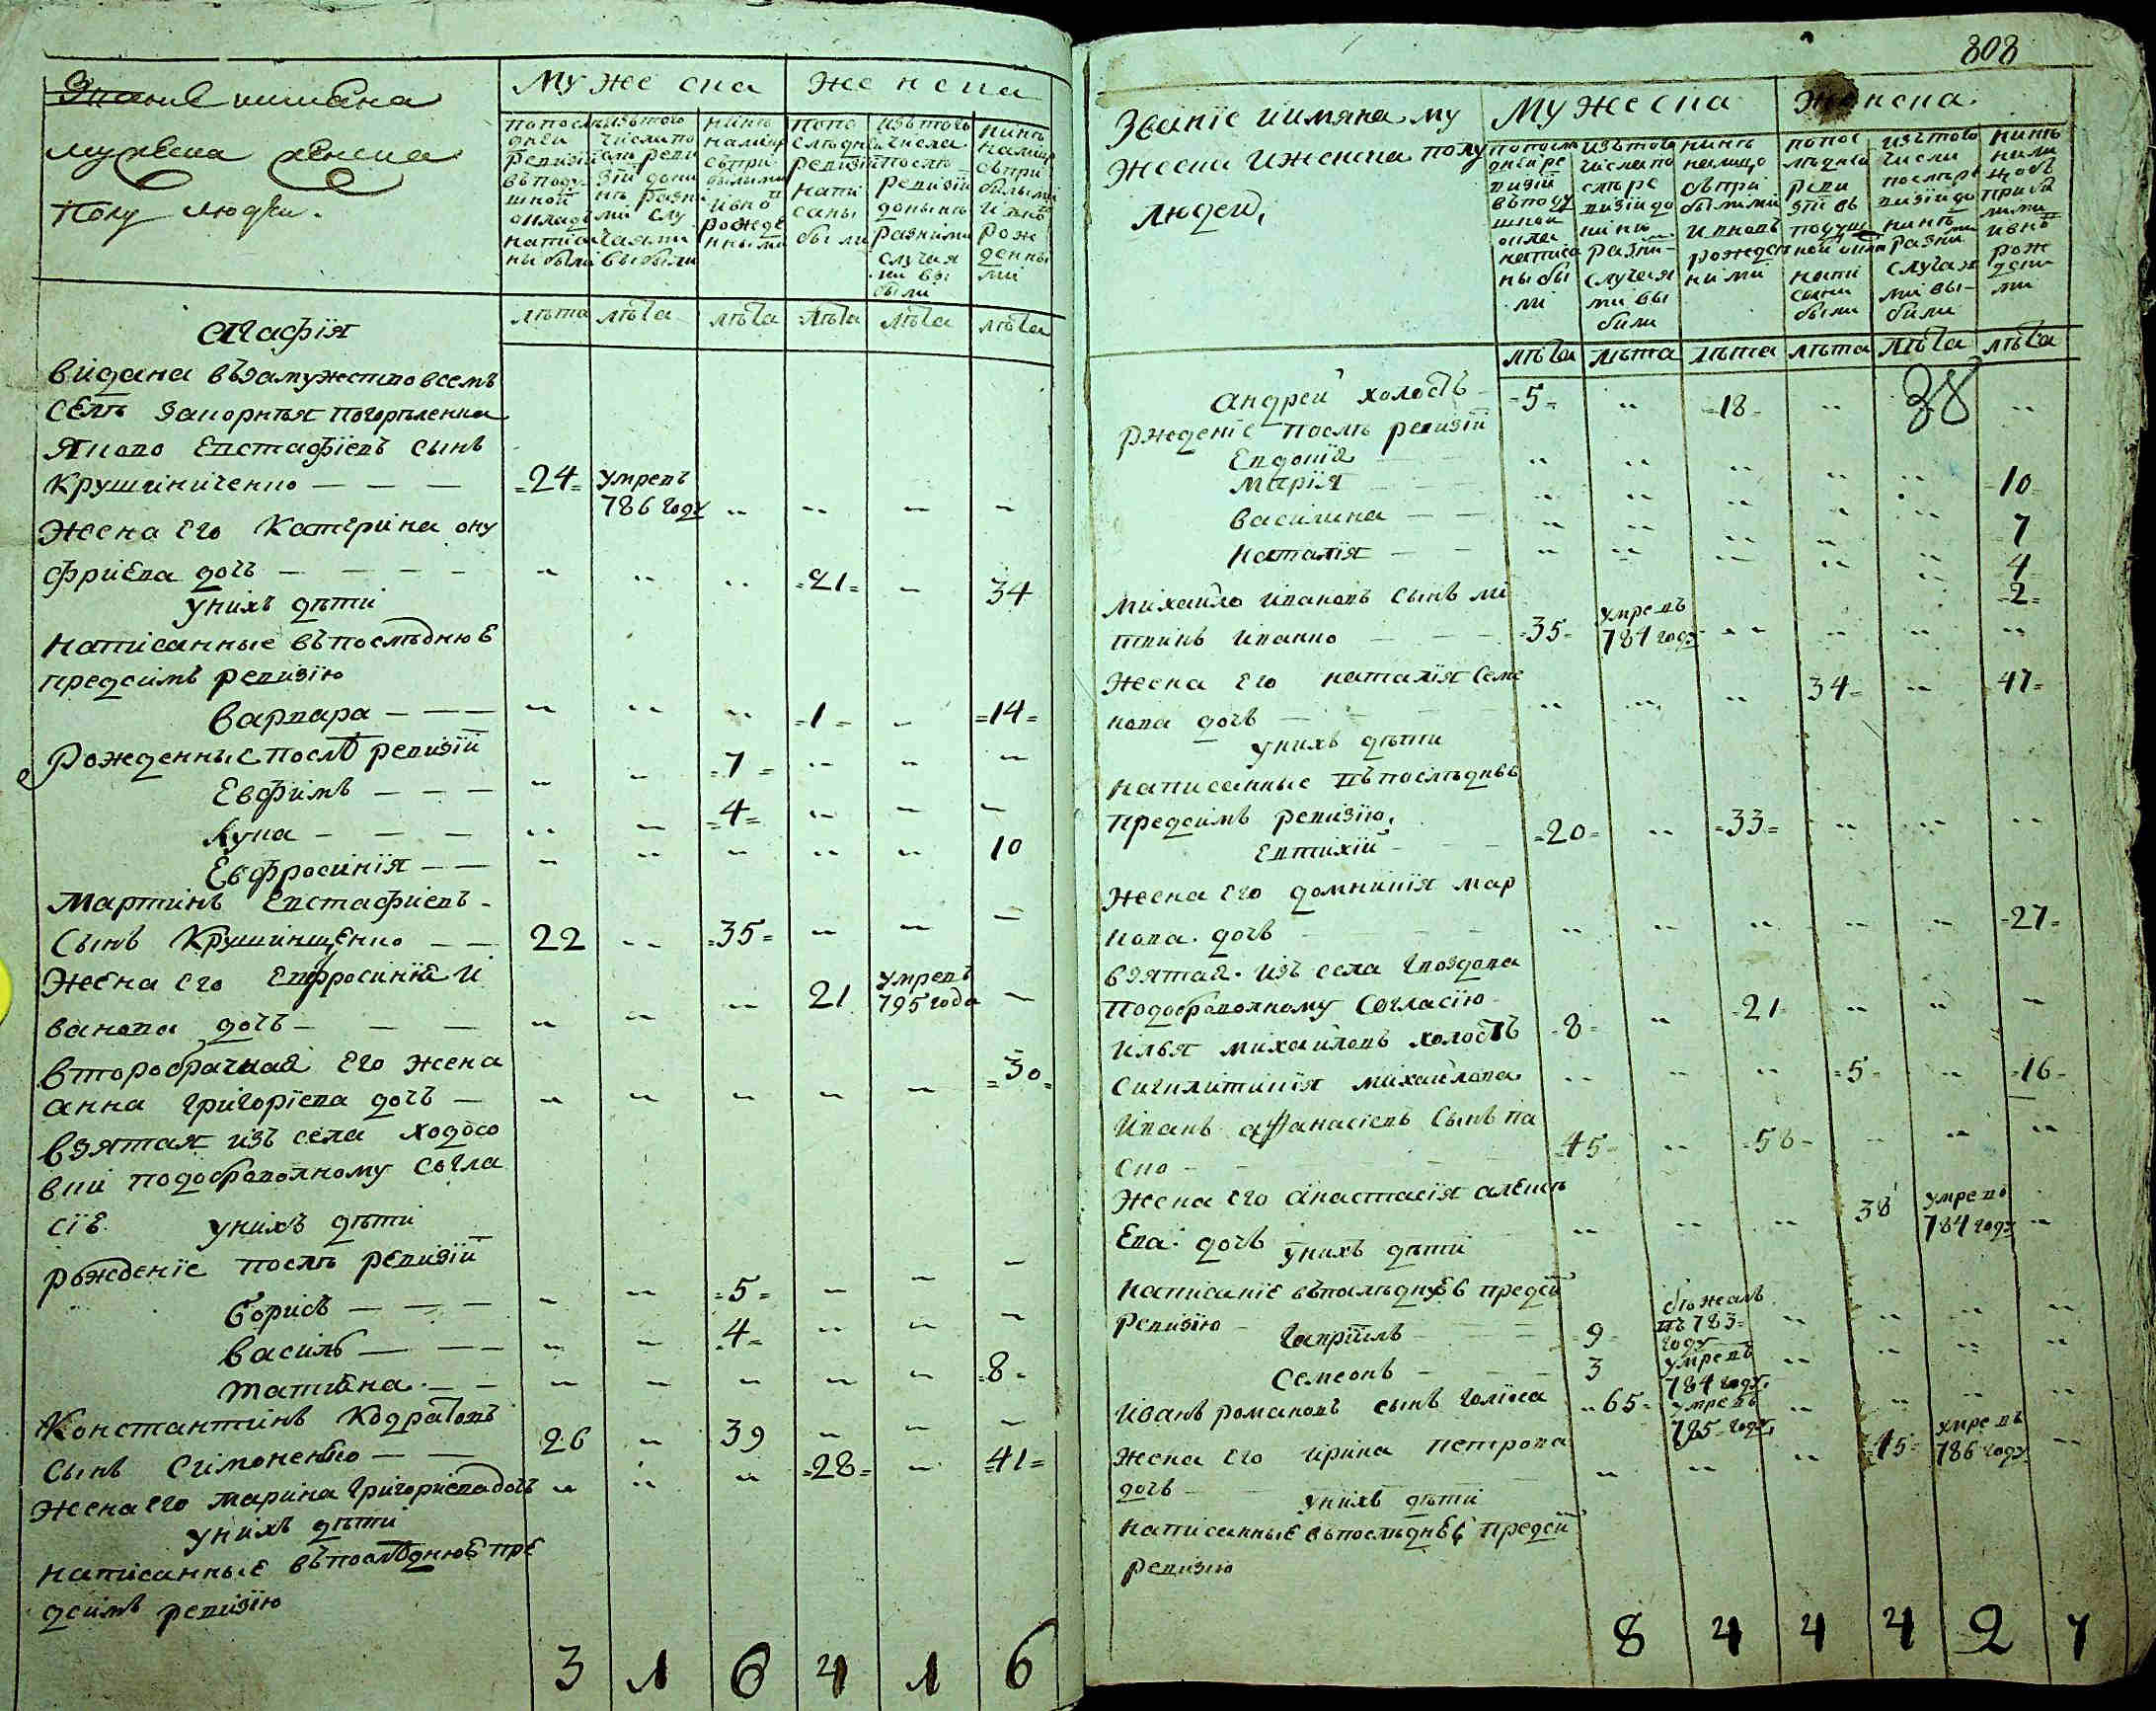 Званіе иимяна
мужеска женска
полу людеи.
мужеска
женска
попослѣ
дней
ревизіи
въподу
шной
окладъ
написа
ны были
изътого
числа по
слѣ реви
зіи доны
нѣ разны
ми слу
чаями
выбыли
нынѣ
налицо
съпри
былыми
ивно
рожде
нными
попо
слѣдней
ревизіи
напи
саны
были
изътого
числа
послѣ
ревизіи
донынѣ
разными
случая
ми вы
были
нынѣ
налиц
съпри
былыми
ивнов
рож
денны
ми
лѣта лѣта лѣта лѣта лѣта лѣта
Агафія
видана възамужство всемъ
селѣ запорнѣя погорѣленка
Яково Евстафіевъ сынъ
Крушиниченко — — — =24= умревъ 786 году
Жена его Катерина ону
фриева дочь — — — =21= 34
унихъ дѣти
написанные въпослѣднюе
предсимъ ревизію
Варвара — — — =1= =14=
Рожденные послѣ ревизіи
Евфимъ — — — =7=
Лука — — — =4=
Евфросинія — — 10
Мартинъ Евстафиевъ
сынъ Крушинщенко — — 22 =35=
Жена его Евфросиние и
ванова дочь — — — 21 умревъ 795 года
второбрачная его жена
анна григоріева дочь — =30=
взятая изъ села ходосо
вии подобровольному согла
сіе унихъ дѣти
рожденіе послѣ ревизіи
Борисъ — — — =5=
Василь — — — =4=
Татиана — — =8=
Константинъ Кодратовъ
сынъ Симоненко — — 26 39
Жена его Марина Григориева дочь =28= =41=
унихъ дѣти
написанные въпослѣднюе пре
дсимъ ревизію
3 1 6 4 1 6
808
Званіе иимяна му
жеска иженска полу
людеи,
мужеска
женска
попосле
дней ре
визіи
въподу
шной
окла
написа
ны бы
ли
изътого
числа по
слѣ ре
визіи до
нинѣ
разни
случая
ми вы
были
нинѣ
налицо
съпри
былыми
ивновъ
рожден
ними
попос
лѣдней
реви
зіи въ
подуш
ной окла
напи
сани
были
изътого
числа
послѣ ре
визіи до
нинѣ
разни
случая
ми вы
были
нинѣ
нали
цо съ
прибы
лими
ивно
рож
дени
ми
лѣта лѣта лѣта лѣта лѣта лѣта
Андрей холостъ =5= =18= 38
Рждение послѣ ревизіи
Евдокія — — 10
Марія — — 7
Василина — — 4
Наталія — — =2=
Михайло Ивановъ сынъ ли
твинъ Иванко — =35= умревъ 784 году
Жена его наталія семе
нова дочь — 34= 47=
унихъ дѣти
написанные въпослѣднъе
предсимъ ревизію.
Евтихій — =20= =33=
Жена его домникія мар
кова дочь — =27=
взятая изъ села гвоздова
подобровольному согласію
Илья Михайловъ холостъ =8= =21=
Сигилитикія михайлова =5= =16=
Иванъ афанасіевъ сынъ па
сно — =45= =58=
Жена его анастасія алексѣ
ева дочь 38 умревъ 784 году
унихъ дѣти
написаніе въпослѣднуюе предси
ревизію
Гавріилъ — =9= бѣжалъ въ783= году
Семеонъ — 3 умревъ 784 году.
Иванъ романовъ сынъ голіка =65= умревъ 785 году,
Жена его ирина петрова
дочь — =45= умревъ 786 году
унихъ дѣти
написанные въпослѣднее предси
ревизию
8 4 4 4 2 7